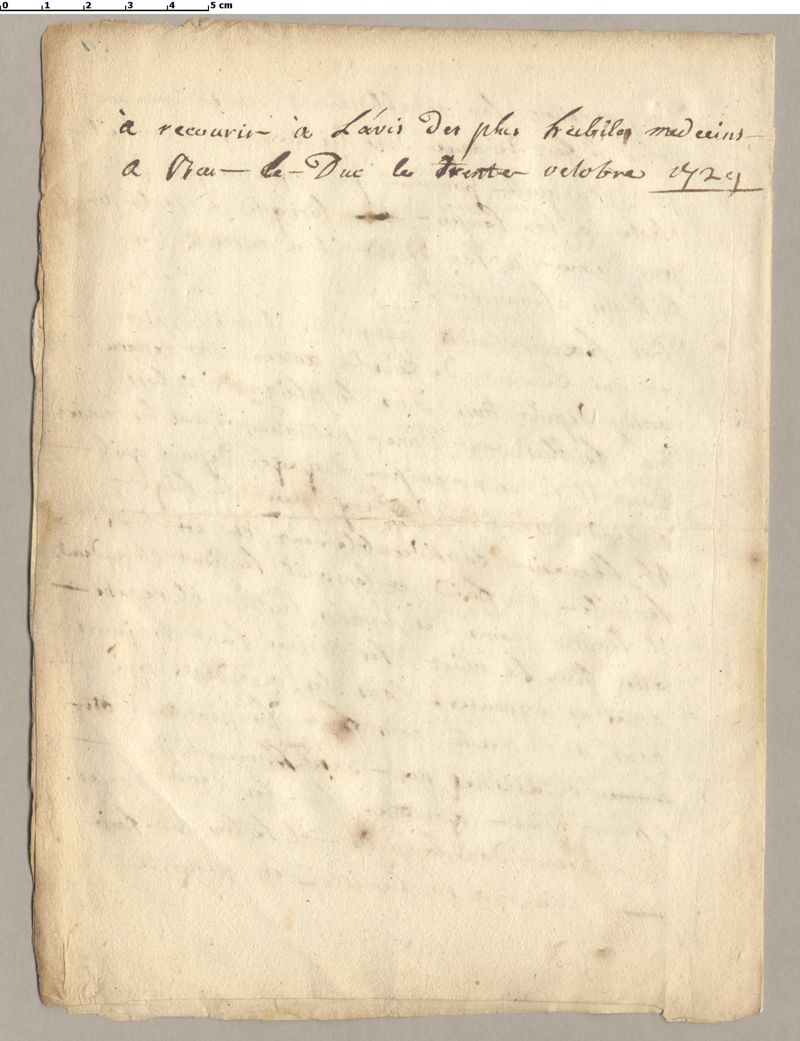 0 1 2 3 4 5 cm
à recourir à L'avis Des plus habiles medecins
A Bar-le-Duc le trente octobre 1729